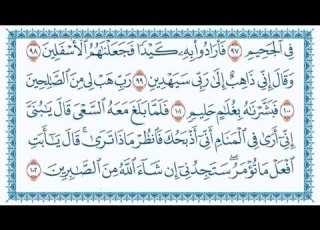 فِي الْجَحِيمِ ٩٧ فَأَرَادُوا بِهِ كَيْدًا فَجَعَلْنَاهُمُ الْأَسْفَلِينَ ٩٨
وَقَالَ إِنِّي ذَاهِبٌ إِلَىٰ رَبِّي سَيَهْدِينِ ٩٩ رَبِّ هَبْ لِي مِنَ الصَّالِحِينَ
١٠٠ فَبَشَّرْنَاهُ بِغُلَامٍ حَلِيمٍ ١٠١ فَلَمَّا بَلَغَ مَعَهُ السَّعْيَ قَالَ يَا بُنَيَّ
إِنِّي أَرَىٰ فِي الْمَنَامِ أَنِّي أَذْبَحُكَ فَانظُرْ مَاذَا تَرَىٰ ۚ قَالَ يَا أَبَتِ
افْعَلْ مَا تُؤْمَرُ ۖ سَتَجِدُنِي إِن شَاءَ اللَّهُ مِنَ الصَّابِرِينَ ١٠٢